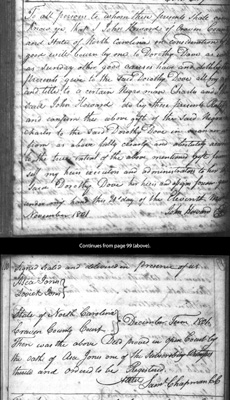 To all persons to whom these presents shall come
Know ye that I John Howard of Craven County
and State of North Carolina in consideration of
good will born by me to Dorothy Dove and for
or Sundry other good causes have and do by these
presents give to the Said Dorothy Dove all my
and title to a certain Negro man Charles and
Said John Howard do by these presents
and confirm the above gift of the Said Negro
Charles to the Said Dorothy Dove in manner
from as above fully clearly and absolutely
to the intent of the above mentioned gift from
my heirs executors and administrators to her the
Said Dorothy Dove her heirs and assigns forever
under my hand this 21st day of the Eleventh Mo
November 1801
John Howard
Continues from page 99 (above).
Signed Sealed and delivered in presence of us
Asa Jones
Lovick Jones
State of North Carolina
Craven County Court
December Term 1801
Then was the above Deed proved in Open Court by
the oath of Asa Jones one of the Subscribing
thereto and ordered to be Registered
Attest Saml Chapman CC